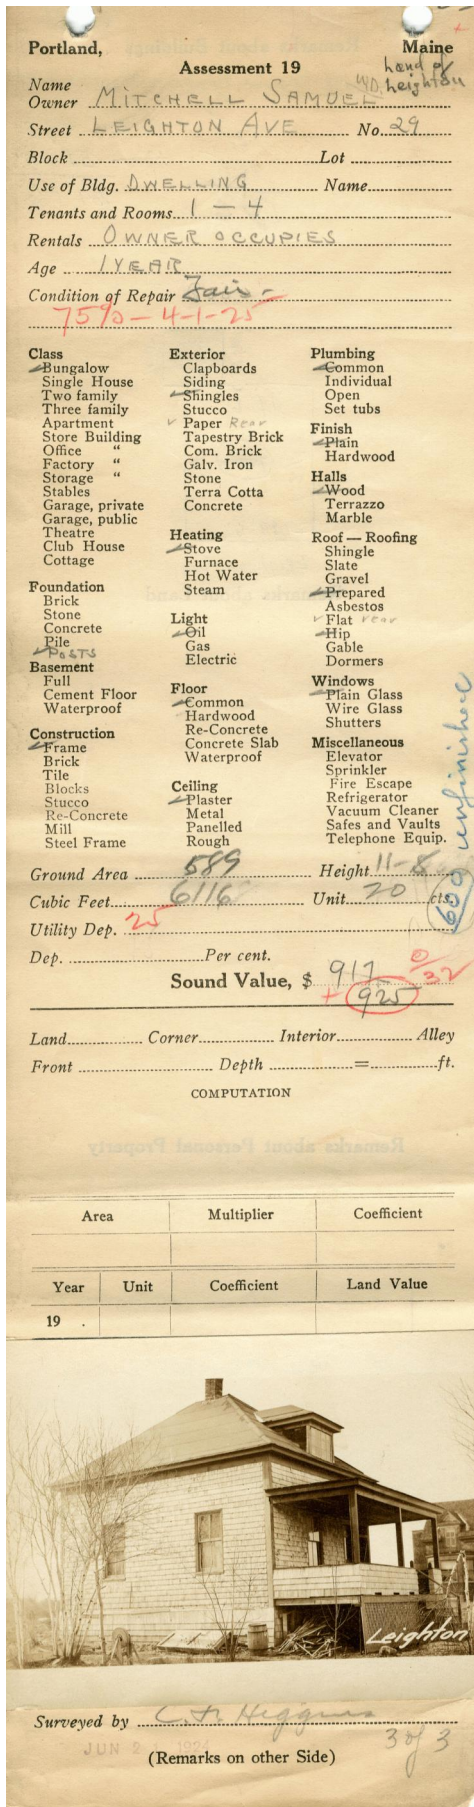 Portland, Maine
Assessment 19
land of
W.D. Leighton
Name
Owner MITCHELL SAMUEL
Street LEIGHTON AVE No. 29
Block Lot
Use of Bldg. DWELLING Name
Tenants and Rooms 1 — 4
Rentals OWNER OCCUPIES
Age 1 YEAR
Condition of Repair Fair -
75% - 4-1-25
Class
Bungalow
Single House
Two family
Three family
Apartment
Store Building
Office "
Factory "
Storage "
Stables
Garage, private
Garage, public
Theatre
Club House
Cottage
Foundation
Brick
Stone
Concrete
Pile
POSTS
Basement
Full
Cement Floor
Waterproof
Construction
Frame
Brick
Tile
Blocks
Stucco
Re-Concrete
Mill
Steel Frame
Exterior
Clapboards
Siding
Shingles
Stucco
Paper Rear
Tapestry Brick
Com. Brick
Galv. Iron
Stone
Terra Cotta
Concrete
Heating
Stove
Furnace
Hot Water
Steam
Light
Oil
Gas
Electric
Floor
Common
Hardwood
Re-Concrete
Concrete Slab
Waterproof
Ceiling
Plaster
Metal
Panelled
Rough
Plumbing
Common
Individual
Open
Set tubs
Finish
Plain
Hardwood
Halls
Wood
Terrazzo
Marble
Roof — Roofing
Shingle
Slate
Gravel
Prepared
Asbestos
Flat rear
Hip
Gable
Dormers
Windows
Plain Glass
Wire Glass
Shutters
Miscellaneous
Elevator
Sprinkler
Fire Escape
Refrigerator
Vacuum Cleaner
Safes and Vaults
Telephone Equip.
600 unfinished
Ground Area 589 Height 11-8
Cubic Feet 6116 Unit 20 cts.
Utility Dep. 25
Dep. Per cent.
Sound Value, $ 917
+ 925
0/32
Land Corner Interior Alley
Front Depth = ft.
COMPUTATION
Area Multiplier Coefficient
Year Unit Coefficient Land Value
19 .
Leighton
Surveyed by C. F. Higgins
JUN 2 1924
3 of 3
(Remarks on other Side)